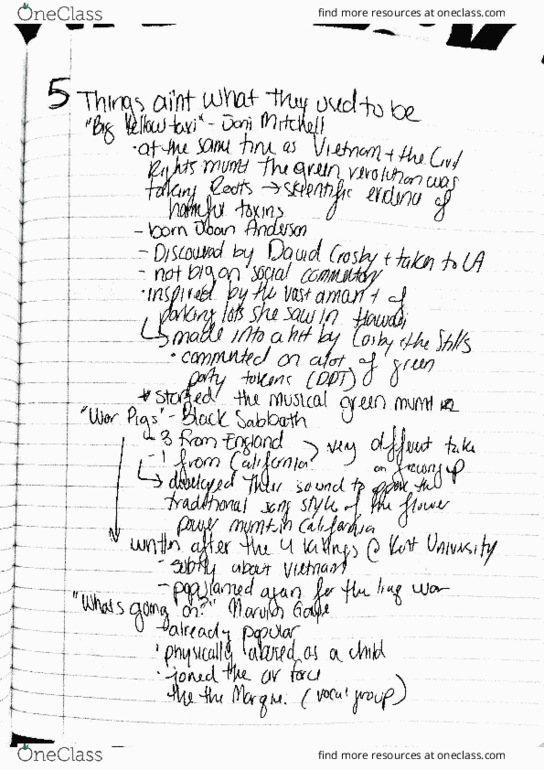 OneClass
find more resources at oneclass.com
5 Things aint what they used to be
"Big Yellow taxi" - Joni Mitchell
• at the same time as Vietnam + the Civil
Rights mvmt the green revolution was
taking Roots → scientific evidence of
harmful toxins
- born Joan Anderson
- Discovered by David Crosby + taken to LA
- not big on social commentary
• inspired by the vast amant of
parking lots she saw in Hawaii
↳ made into a hit by Cosby + the Stills
• commented on alot of green
party (DDT)
* started the musical green mvmt
"War Pigs" - Black Sabbath
- 3 from England
- 1 from California
very different take
on growing up
↳ developed their sound to oppose the
traditional song style of the flower
power mvmt in California
written after the 4 killings @ Kent University
- subtly about Vietnam
- again for the Iraq war
"Whats going on?" Marvin Gaye
- already popular
• physically abused as a child
• joined the air force
the the Marque. (vocal group)
OneClass
find more resources at oneclass.com